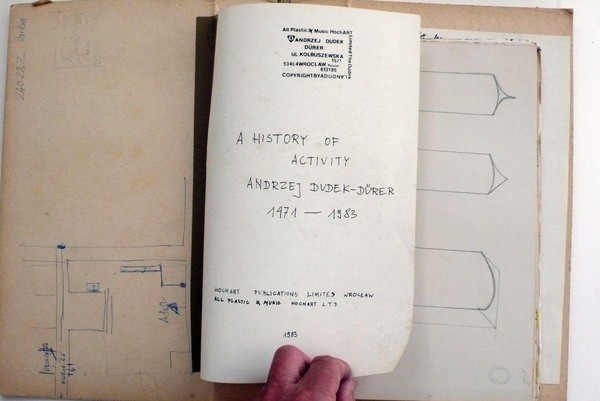 All Plastic & Music HochART
ANDRZEJ DUDEK
DÜRER
UL.KOLBUSZEWSKA
15/1
53404WROCLAW Poland
613195
Limited The Dudka
A HISTORY OF
ACTIVITY
ANDRZEJ DUDEK-DÜRER
1471 — 1983
HOCHART PUBLICATIONS LIMITED WROCŁAW
ALL PLASTIC & MUSIC HOCHART L.T.D.
1983
240282